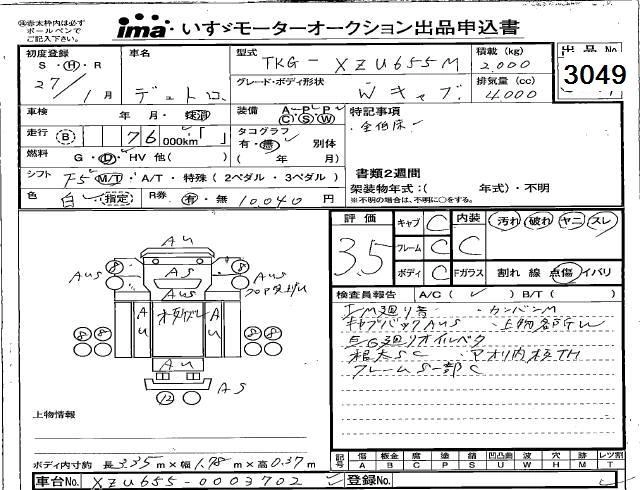 ㊟赤太枠内は必ず
ボールペンで
ご記入下さい。
ima いすゞモーターオークション出品申込書
初度登録 S・Ⓗ・R 27/1月
車名 デュトロ
型式 TKG-XZU655M
積載(kg) 2,000
グレード・ボディ形状 Wキャブ
排気量(cc) 4,000
出品No 3049
車検 年 月・抹消
装備 A・P・P C・S・W
特記事項
・全低床
走行 B 76 000km「 」
タコグラフ
有・無 別体
( 年 月)
燃料 G・D・HV 他( )
書類2週間
シフト F5 M/T・A/T・特殊(2ペダル・3ペダル)
架装物年式:( 年式)・不明
※不明の場合は、不明に○をする。
色 白 ・指定
R券 有・無 10,040円
評価 3.5
キャブ C
フレーム C
ボディ C
内装 C
汚れ 破れ ヤニ スレ
Fガラス 割れ 線 点傷 イバリ
検査員報告 A/C( ✓ ) B/T( )
キャブバックAUS
フレームS一部C
AU
8
8
AUS
AUS
AU
S
AUS
AU
AU
8
8
8
8
AU
AS
12
上物情報
ボディ内寸約 長3.35m×幅1.98m×高0.37m
記号 傷A 板金B 腐C 塗P 錆S 凹凸曲U 波W 穴H 跡M レツ割T
車台No. XZU655-0003702
登録No.